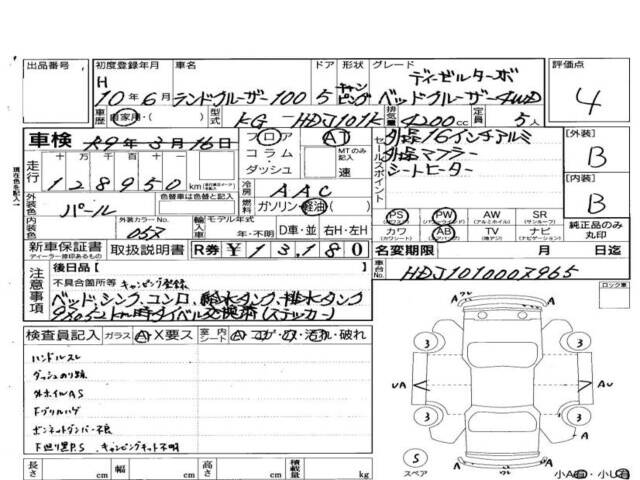 出品番号 初度登録年月 車名 ドア 形状 グレード 評価点
H
10年6月 ランドクルーザー100 5 キャンピング ディーゼルターボ
ベッドクルーザー4WD
4
車歴 自家用・( ) 型式 KG-HDJ101K 排気量 4200cc 定員 5人
車検 R9年3月16日 フロア AT
コラム・ダッシュ MTのみ記入 速
走行 十万 万 千 百 十 一
128950km
冷房 AAC
セールスポイント
外品16インチアルミ
外品マフラー
シートヒーター
【外装】
B
【内装】
B
外装色 パール 色替車は色替と記入
外装カラーNo. 057
燃料 ガソリン・軽油・( )
輸入車 モデル年式 年・不明 D車・並 右H・左H
PS PW AW SR
(パワーウィンドウ) (アルミホイル) (サンルーフ)
カワ AB TV ナビ
(カワシート) (エアバッグ) (地デジ) (ナビゲーション)
純正品のみ丸印
新車保証書 取扱説明書 R券 ¥13,180
ディーラー捺印あるもの
名変期限 月 日迄
車台No. HDJ1010007965
現在色を記入
注意事項
後日品【 】
不具合箇所等 キャンピング登録
ベッド、シンク、コンロ、給水タンク、排水タンク
93052km時タイベル交換済(ステッカー)
ロック車
検査員記入 ガラス A・X要ス 室内シート A・コゲ・穴・汚れ・破れ
ハンドルスレ
ダッシュのり跡
外ホイルAS
ボンネットダンパー不良
下廻り黒P.S キャンピングキット不明
3 3
UA A AU
3 3
A
5
スペア
小A有・小U有
長さ cm 幅 cm 高さ cm 積載量 kg